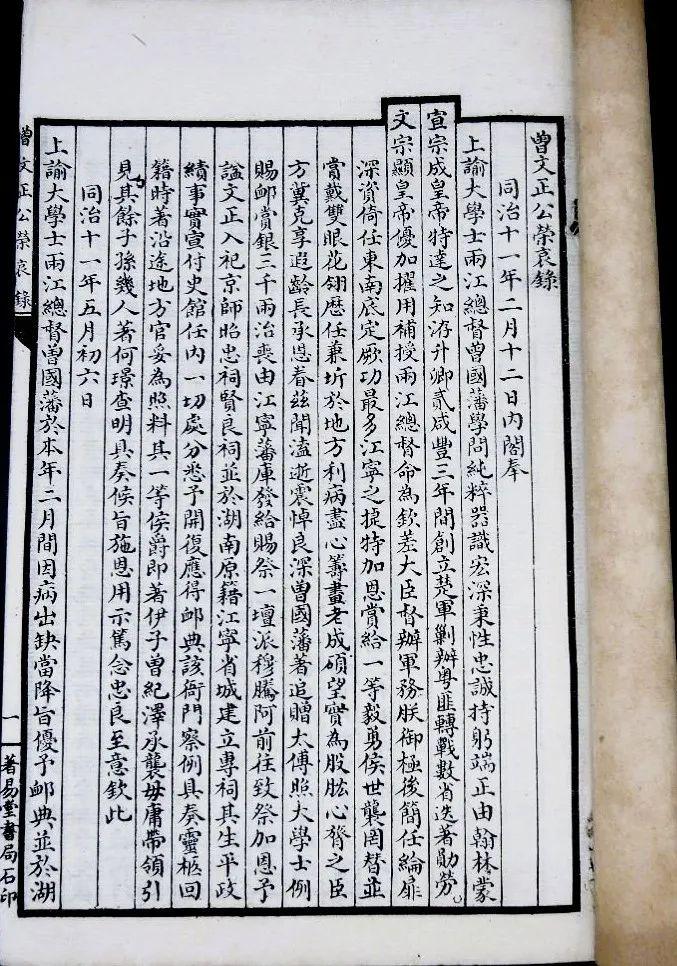 曾文正公榮哀錄
同治十一年二月十二日內閣奉
上諭大學士兩江總督曾國藩學問純粹器識宏深秉性忠誠持躬端正由翰林蒙
宣宗成皇帝特達之知洊升卿貳咸豐三年間創立楚軍剿辦粵匪轉戰數省迭著勛勞
文宗顯皇帝優加擢用補授兩江總督命為欽差大臣督辦軍務朕御極後簡任綸扉
深資倚任東南底定厥功最多江寧之捷特加恩賞給一等毅勇侯世襲罔替並
賞戴雙眼花翎歷任兼圻於地方利病盡心籌畫老成碩望實為股肱心膂之臣
方冀克享遐齡長承恩眷茲聞溘逝震悼良深曾國藩著追贈太傅照大學士例
賜卹賞銀三千兩治喪由江寧藩庫發給賜祭一壇派穆騰阿前往致祭加恩予
諡文正入祀京師昭忠祠賢良祠並於湖南原籍江寧省城建立專祠其生平政
績事實宣付史館任內一切處分悉予開復應得卹典該衙門察例具奏靈柩回
籍時著沿途地方官妥為照料其一等侯爵即著伊子曾紀澤承襲毋庸帶領引
見其餘子孫幾人著何璟查明具奏候旨施恩用示篤念忠良至意欽此
同治十一年五月初六日
上諭大學士兩江總督曾國藩於本年二月間因病出缺當降旨優予卹典並於湖
曾文正公榮哀錄
一
著易堂書局石印